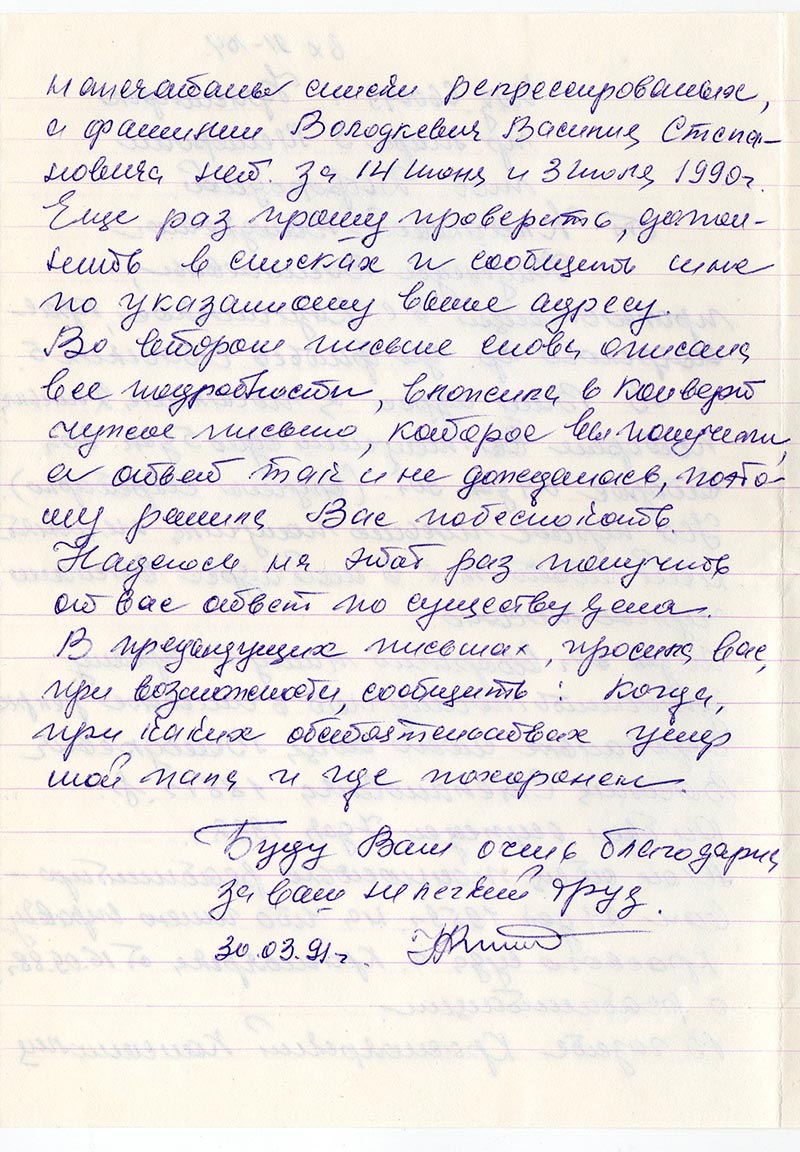 напечатаны списки репрессированных,
а фамилии Володкевич Василия Степа-
новича нет. за 14 июня и 3 июля 1990г.
Еще раз прошу проверить, допол-
нить в списках и сообщить мне
по указанному выше адресу.
Во втором письме снова описала
все подробности, вложила в конверт
чужое письмо, которое вы получили,
а ответ так и не дождалась, поэто-
му решила Вас побеспокоить
Надеюсь на этот раз получить
от вас ответ по существу дела.
В предыдущих письмах, просила вас,
при возможности, сообщить: Когда,
при каких обстоятельствах умер
мой папа и где похоронен.
Буду Вам очень благодарна
за ваш нелегкий труд.
30.03.91г.